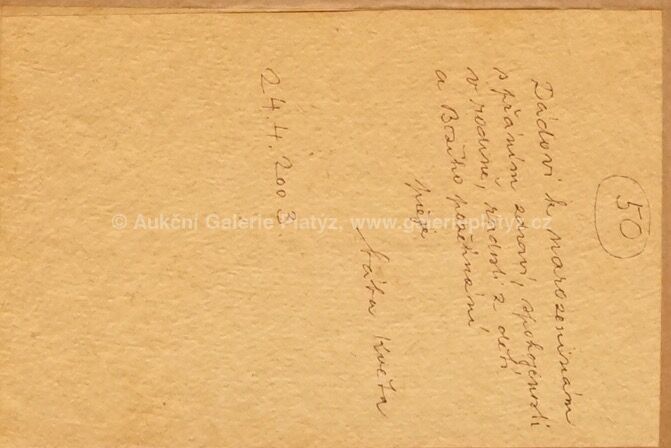 50
Dádovi k narozeninám
s přáním zdraví, spokojenosti
v rodině, radosti z dětí
a Božího požehnání
přeje
táta Květa
24.4.2003
© Aukční Galerie Platýz, www.galerieplatyz.cz